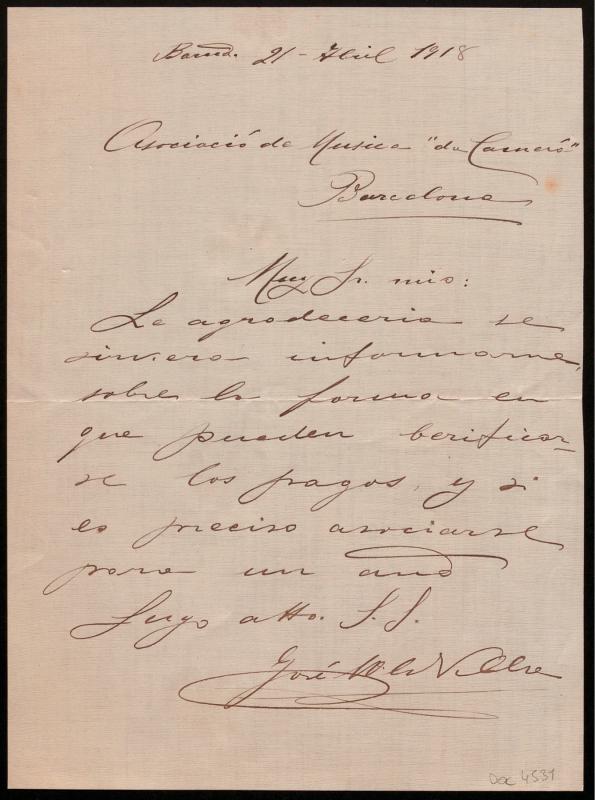 Barna. 21 - Abril 1918
Asociació de Musica "da Camera"
Barcelona
Muy Sr. mio:
Le agradeceria se
sirviera informarme,
sobre la forma en
que pueden berificar-
se los pagos, y si
es preciso asociarse
para un año
Suyo atto. S. S.
José
Doc 4531